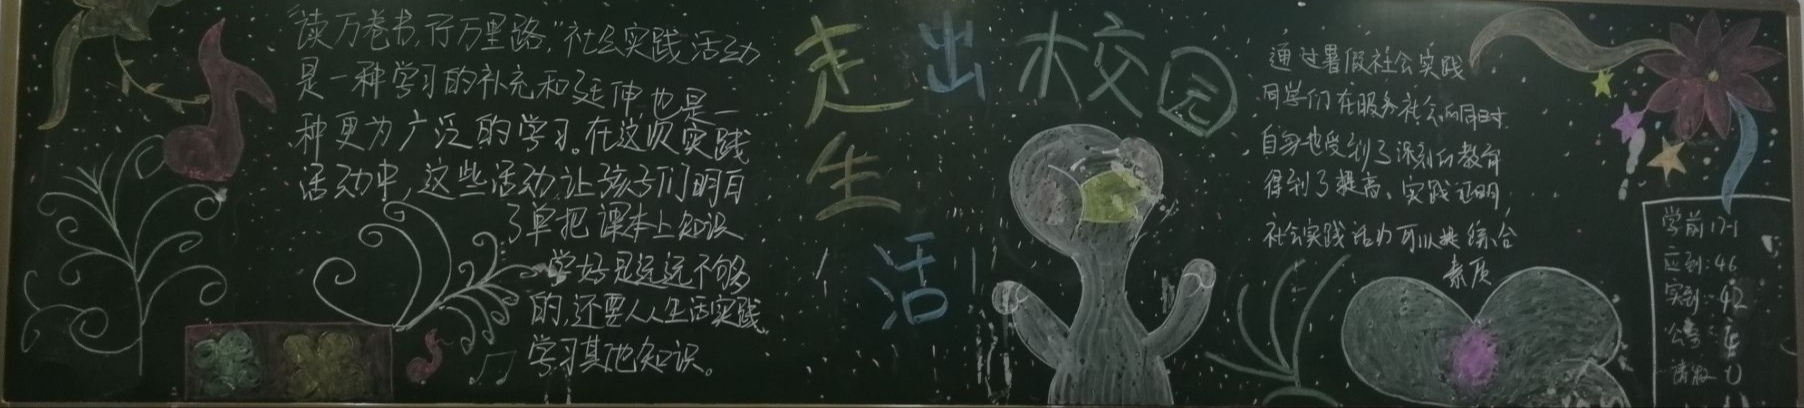 “读万卷书,行万里路,”社会实践活动
是一种学习的补充和延伸也是一
种更为广泛的学习。在这次实践
活动中,这些活动让孩子们明白
了单把课本上知识
学好是远远不够
的,还要从生活实践
学习其他知识。
走出校园
生
活
通过暑假社会实践
同学们在服务社会的同时
自身也受到了深刻的教育
得到了提高。实践证明
社会实践活动可以提综合
素质
学前17-1
应到:46
实到:42
公事:
请假